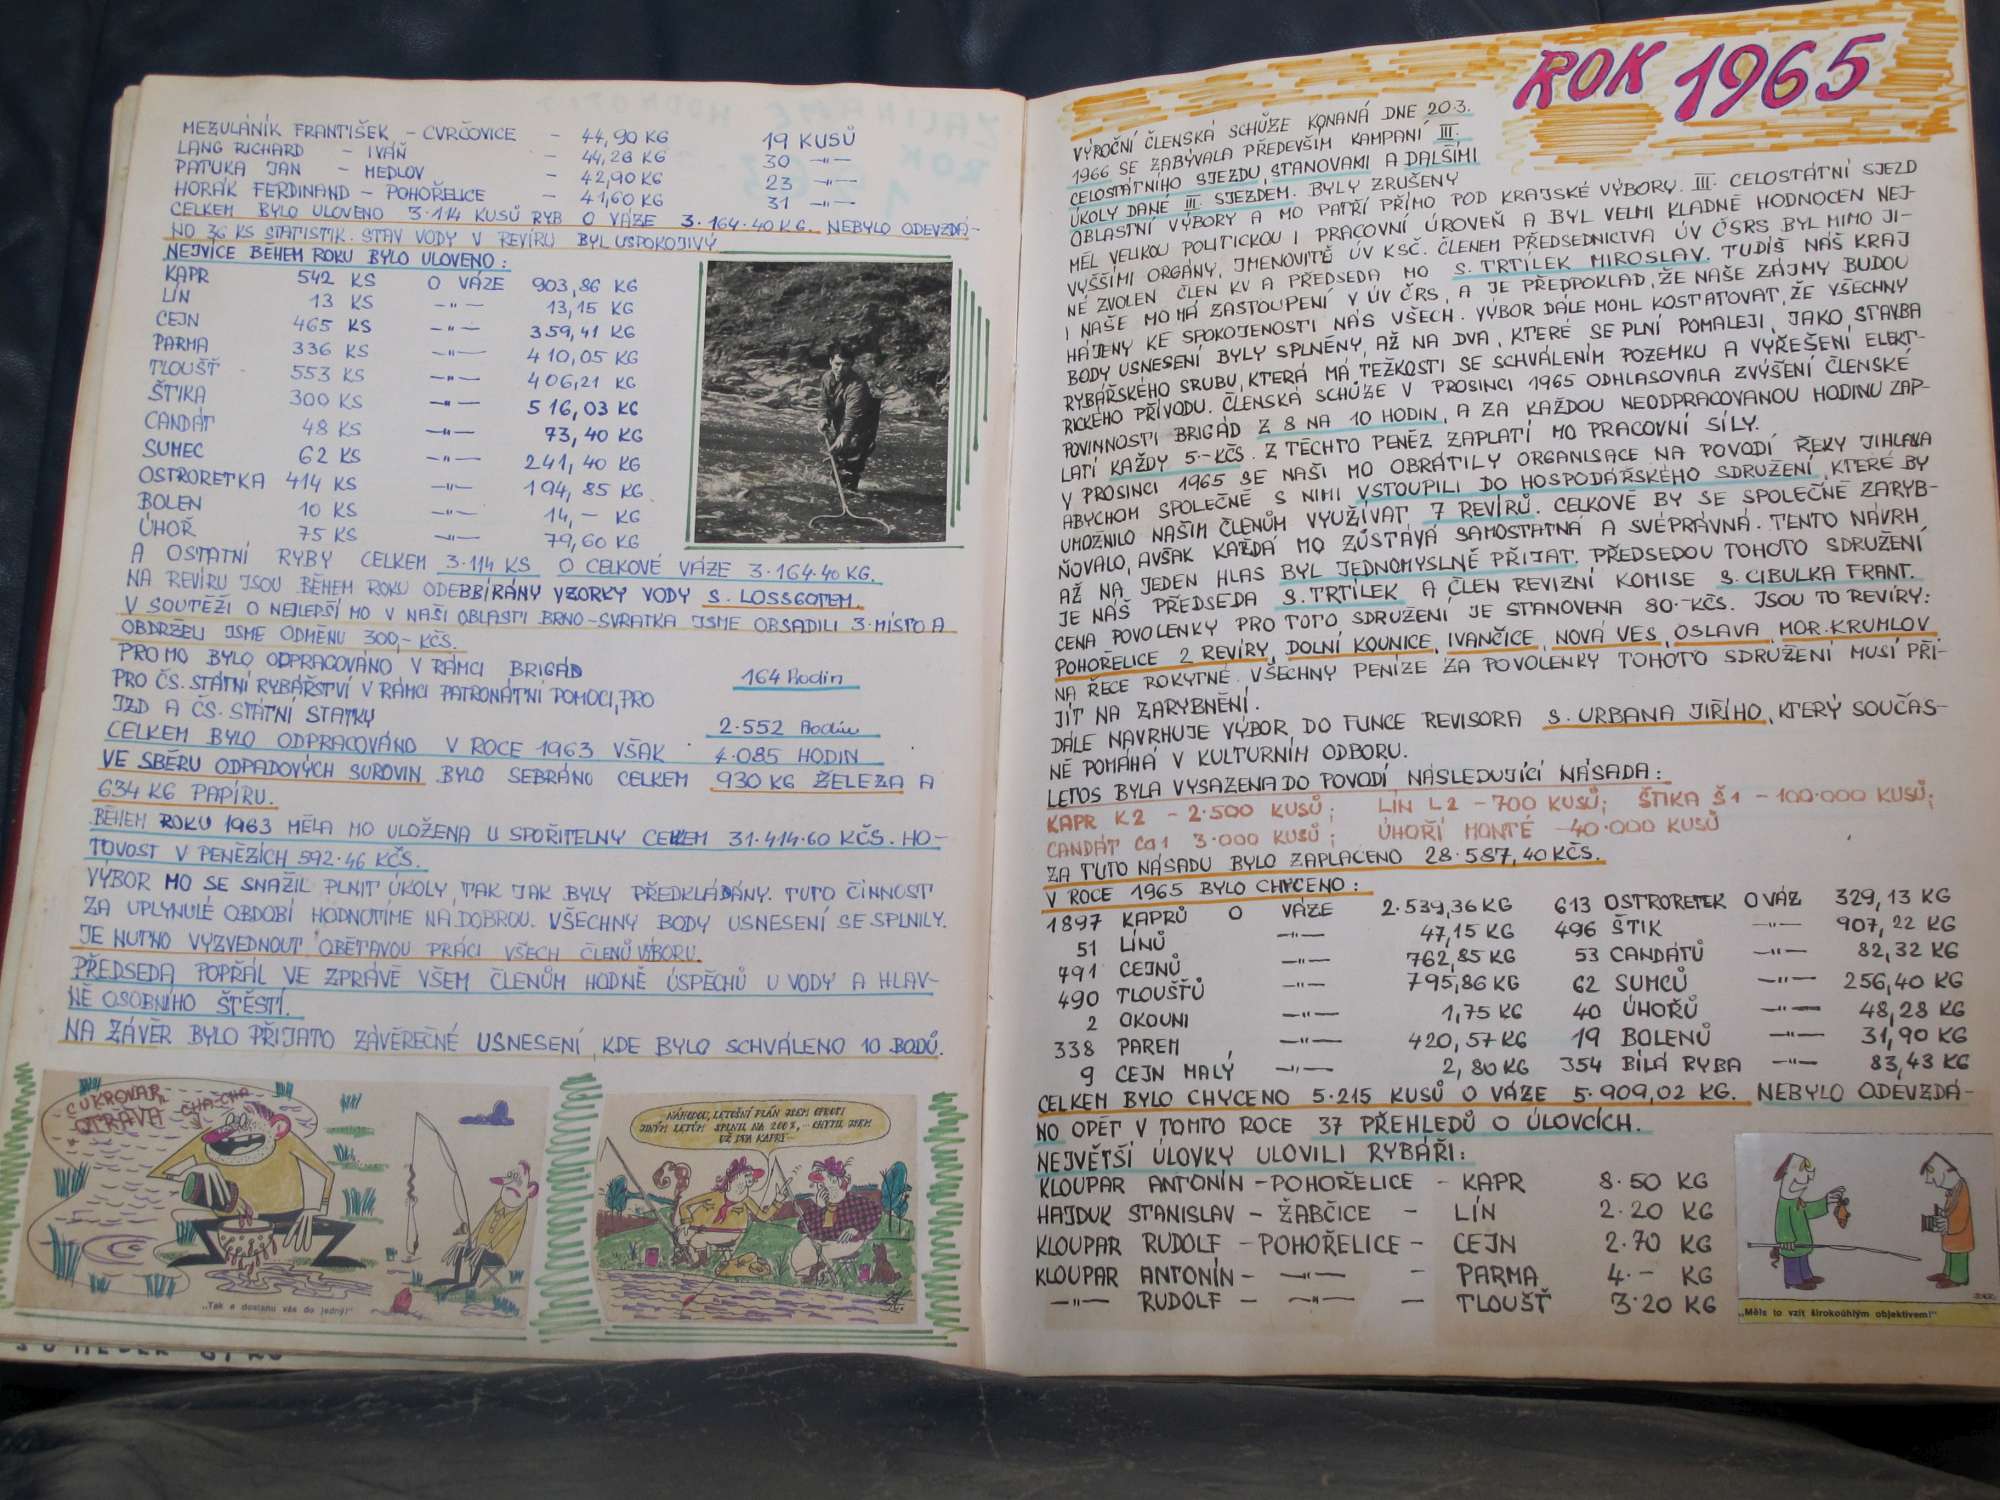 MEZULÁNÍK FRANTIŠEK – CVRČOVICE – 44,90 KG 19 KUSŮ
LANG RICHARD – IVÁŇ – 44,28 KG 30 –"–
PATUKA JAN – MEDLOV – 42,90 KG 23 –"–
HORÁK FERDINAND – POHOŘELICE – 41,60 KG 31 –"–
CELKEM BYLO ULOVENO 3·114 KUSŮ RYB O VÁZE 3·164·40 KG. NEBYLO ODEVZDÁ-
NO 36 KS STATISTIK. STAV VODY V REVÍRU BYL USPOKOJIVÝ
NEJVÍCE BĚHEM ROKU BYLO ULOVENO:
KAPR 542 KS O VÁZE 903,86 KG
LÍN 13 KS –"– 13,15 KG
CEJN 465 KS –"– 359,41 KG
PARMA 336 KS –"– 410,05 KG
TLOUŠŤ 553 KS –"– 406,21 KG
ŠTIKA 300 KS –"– 516,03 KG
CANDÁT 48 KS –"– 73,40 KG
SUMEC 62 KS –"– 241,40 KG
OSTRORETKA 414 KS –"– 194,85 KG
BOLEN 10 KS –"– 14,– KG
ÚHOŘ 75 KS –"– 79,60 KG
A OSTATNÍ RYBY CELKEM 3·114 KS O CELKOVÉ VÁZE 3·164·40 KG.
NA REVÍRU JSOU BĚHEM ROKU ODEBBÍRÁNY VZORKY VODY S. LOSSGOTEM.
V SOUTĚŽI O NEJLEPŠÍ MO V NAŠÍ OBLASTI BRNO-SVRATKA JSME OBSADILI 3·MÍSTO A
OBDRŽELI JSME ODMĚNU 300,– KČS.
PRO MO BYLO ODPRACOVÁNO V RÁMCI BRIGÁD 164 Hodin
PRO ČS. STÁTNÍ RYBÁŘSTVÍ V RÁMCI PATRONÁTNÍ POMOCI, PRO
JZD A ČS. STÁTNÍ STATKY 2·552 Hodin
CELKEM BYLO ODPRACOVÁNO V ROCE 1963 VŠAK 4·085 HODIN
VE SBĚRU ODPADOVÝCH SUROVIN BYLO SEBRÁNO CELKEM 930 KG ŽELEZA A
634 KG PAPÍRU.
BĚHEM ROKU 1963 MĚLA MO ULOŽENA U SPOŘITELNY CELKEM 31·414·60 KČS. HO-
TOVOST V PENĚZÍCH 592·46 KČS.
VÝBOR MO SE SNAŽIL PLNIT ÚKOLY, TAK JAK BYLY PŘEDKLÁDÁNY. TUTO ČINNOST
ZA UPLYNULÉ OBDOBÍ HODNOTÍME NA DOBROU. VŠECHNY BODY USNESENÍ SE SPLNILY.
JE NUTNO VYZVEDNOUT OBĚTAVOU PRÁCI VŠECH ČLENŮ VÝBORU.
PŘEDSEDA POPŘÁL VE ZPRÁVĚ VŠEM ČLENŮM HODNĚ ÚSPĚCHŮ U VODY A HLAV-
NĚ OSOBNÍHO ŠTĚSTÍ.
NA ZÁVĚR BYLO PŘIJATO ZÁVĚREČNÉ USNESENÍ, KDE BYLO SCHVÁLENO 10 BODŮ.
CUKROVAR-
OTRAVA
CHA-CHA
„Tak a dostanu vás do jedný!"
NÁHODOU, LETOŠNÍ PLÁN JSEM OPROTI
JINÝM LETŮM SPLNIL NA 200%, – CHYTIL JSEM
UŽ DVA KAPRY–
ROK 1965
VÝROČNÍ ČLENSKÁ SCHŮZE KONANÁ DNE 20.3.
1966 SE ZABÝVALA PŘEDEVŠÍM KAMPANÍ III.
CELOSTÁTNÍHO SJEZDU, STANOVAMI A DALŠÍMI
ÚKOLY DANÉ III. SJEZDEM. BYLY ZRUŠENY
OBLASTNÍ VÝBORY A MO PATŘÍ PŘÍMO POD KRAJSKÉ VÝBORY. III. CELOSTÁTNÍ SJEZD
MĚL VELIKOU POLITICKOU I PRACOVNÍ ÚROVEŇ A BYL VELMI KLADNĚ HODNOCEN NEJ-
VYŠŠÍMI ORGÁNY, JMENOVITĚ ÚV KSČ. ČLENEM PŘEDSEDNICTVA ÚV ČSRS BYL MIMO JI-
NÉ ZVOLEN ČLEN KV A PŘEDSEDA MO S. TRTÍLEK MIROSLAV. TUDÍŠ NÁŠ KRAJ
I NAŠE MO MÁ ZASTOUPENÍ V ÚV ČRS, A JE PŘEDPOKLAD, ŽE NAŠE ZÁJMY BUDOU
HÁJENY KE SPOKOJENOSTI NÁS VŠECH. VÝBOR DÁLE MOHL KOSTATOVAT, ŽE VŠECHNY
BODY USNESENÍ BYLY SPLNĚNY, AŽ NA DVA, KTERÉ SE PLNÍ POMALEJI, JAKO STAVBA
RYBÁŘSKÉHO SRUBU, KTERÁ MÁ TĚŽKOSTI SE SCHVÁLENÍM POZEMKU A VYŘEŠENÍ ELEKT-
RICKÉHO PŘÍVODU. ČLENSKÁ SCHŮZE V PROSINCI 1965 ODHLASOVALA ZVÝŠENÍ ČLENSKÉ
POVINNOSTI BRIGÁD Z 8 NA 10 HODIN, A ZA KAŽDOU NEODPRACOVANOU HODINU ZAP-
LATÍ KAŽDÝ 5·– KČS. Z TĚCHTO PENĚZ ZAPLATÍ MO PRACOVNÍ SÍLY.
V PROSINCI 1965 SE NAŠI MO OBRÁTILY ORGANISACE NA POVODÍ ŘEKY JIHLAVA
ABYCHOM SPOLEČNĚ S NIMI VSTOUPILI DO HOSPODÁŘSKÉHO SDRUŽENÍ, KTERÉ BY
UMOŽNILO NAŠIM ČLENŮM VYUŽÍVAT 7 REVÍRŮ. CELKOVĚ BY SE SPOLEČNĚ ZARYB-
ŇOVALO, AVŠAK KAŽDÁ MO ZŮSTÁVÁ SAMOSTATNÁ A SVÉPRÁVNÁ. TENTO NÁVRH
AŽ NA JEDEN HLAS BYL JEDNOMYSLNĚ PŘIJAT. PŘEDSEDOU TOHOTO SDRUŽENÍ
JE NÁŠ PŘEDSEDA S. TRTÍLEK A ČLEN REVIZNÍ KOMISE S. CIBULKA FRANT.
CENA POVOLENKY PRO TOTO SDRUŽENÍ JE STANOVENA 80·– KČS. JSOU TO REVÍRY:
POHOŘELICE 2 REVÍRY, DOLNÍ KOUNICE, IVANČICE, NOVÁ VES, OSLAVA, MOR. KRUMLOV
NA ŘECE ROKYTNÉ. VŠECHNY PENÍZE ZA POVOLENKY TOHOTO SDRUŽENÍ MUSÍ PŘI-
JÍT NA ZARYBNĚNÍ.
DÁLE NAVRHUJE VÝBOR, DO FUNCE REVISORA S. URBANA JIŘÍHO, KTERÝ SOUČAS-
NĚ POMÁHÁ V KULTURNÍM ODBORU.
LETOS BYLA VYSAZENA DO POVODÍ NÁSLEDUJÍCÍ NÁSADA:
KAPR K2 – 2·500 KUSŮ; LÍN L2 – 700 KUSŮ; ŠTIKA Š1 – 100·000 KUSŮ;
CANDÁT Ca1 3·000 KUSŮ; ÚHOŘÍ MONTÉ –40·000 KUSŮ
ZA TUTO NÁSADU BYLO ZAPLACENO 28·587,40 KČS.
V ROCE 1965 BYLO CHYCENO:
1897 KAPRŮ O VÁZE 2·539,36 KG 613 OSTRORETEK O VÁZ 329,13 KG
51 LÍNŮ –"– 47,15 KG 496 ŠTIK –"– 907,22 KG
791 CEJNŮ –"– 762,85 KG 53 CANDÁTŮ –"– 82,32 KG
490 TLOUŠŤŮ –"– 795,86 KG 62 SUMCŮ –"– 256,40 KG
2 OKOUNI –"– 1,75 KG 40 ÚHOŘŮ –"– 48,28 KG
338 PAREM –"– 420,57 KG 19 BOLENŮ –"– 31,90 KG
9 CEJN MALÝ –"– 2,80 KG 354 BÍLÁ RYBA –"– 83,43 KG
CELKEM BYLO CHYCENO 5·215 KUSŮ O VÁZE 5·909,02 KG. NEBYLO ODEVZDÁ-
NO OPĚT V TOMTO ROCE 37 PŘEHLEDŮ O ÚLOVCÍCH.
NEJVĚTŠÍ ÚLOVKY ULOVILI RYBÁŘI:
KLOUPAR ANTONÍN – POHOŘELICE – KAPR 8·50 KG
HAJDUK STANISLAV – ŽABČICE – LÍN 2·20 KG
KLOUPAR RUDOLF – POHOŘELICE – CEJN 2·70 KG
KLOUPAR ANTONÍN – –"– PARMA 4·– KG
–"– RUDOLF – –"– – TLOUŠŤ 3·20 KG
„Měls to vzít širokoúhlým objektivem!"